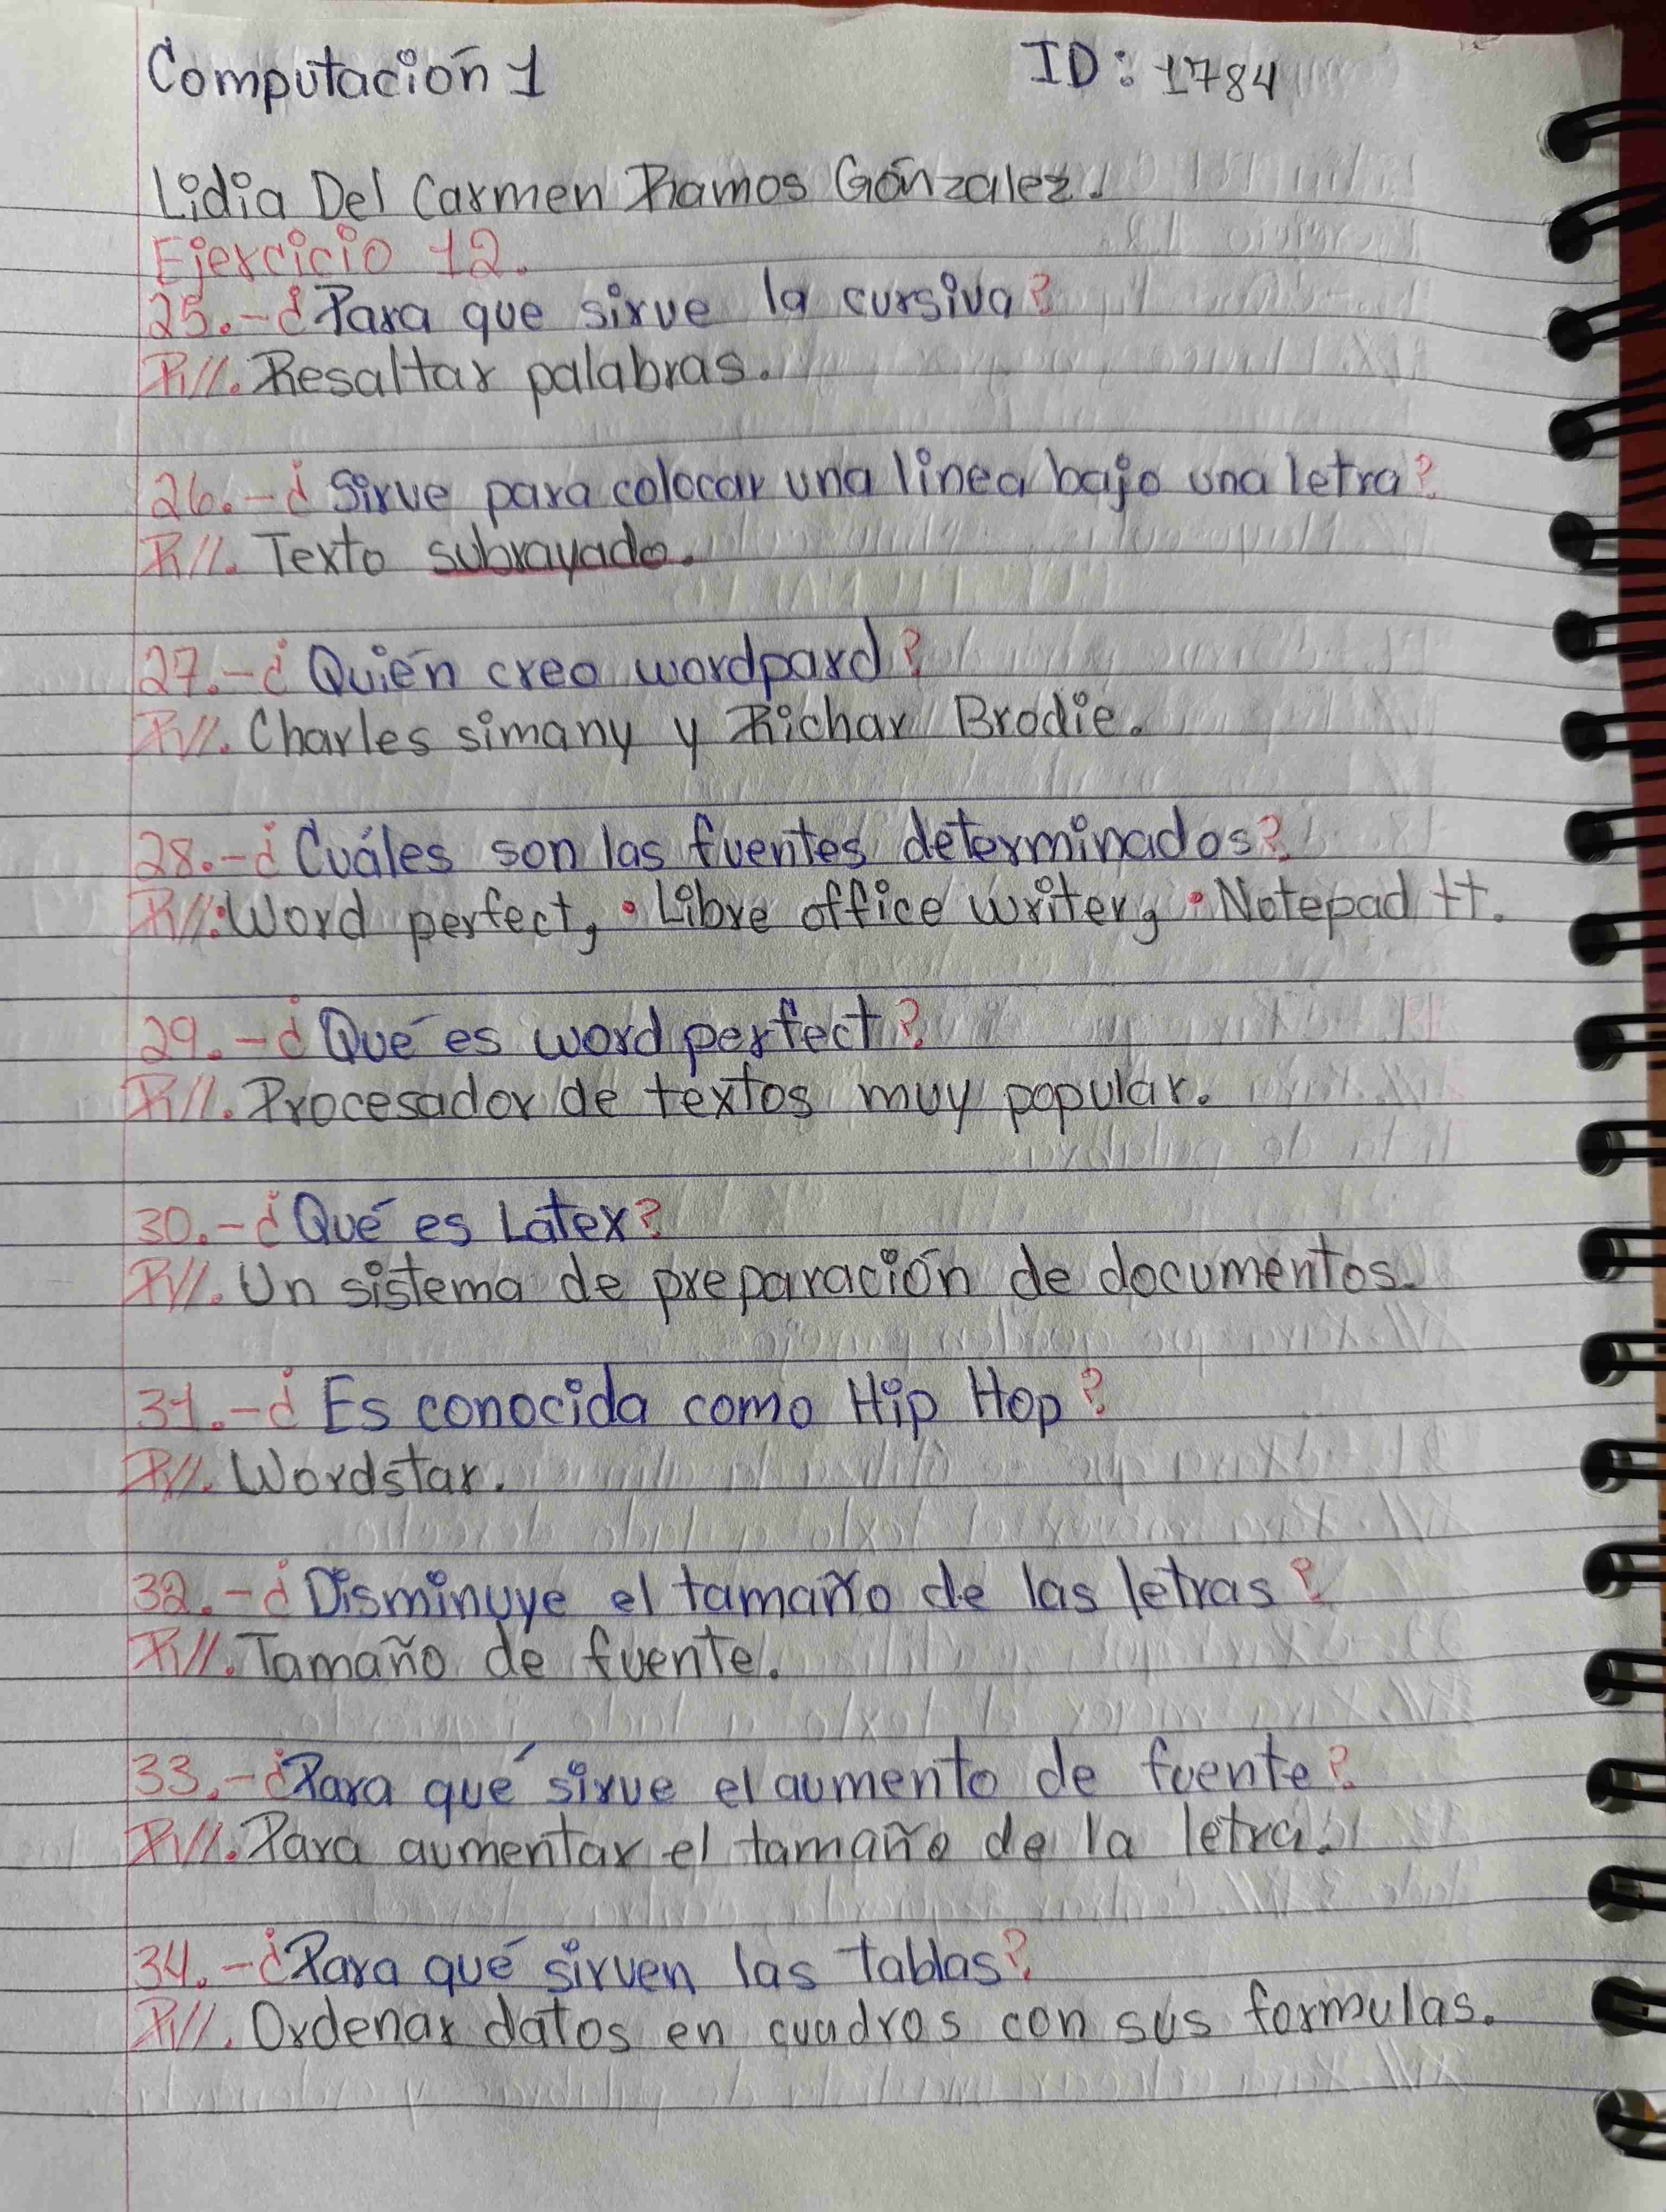 Computación 1 ID: 1784
Lidia Del Carmen Ramos Gónzalez.
Ejercicio 12.
25.-¿Para que sirve la cursiva?
R//. Resaltar palabras.
26.-¿Sirve para colocar una linea bajo una letra?
R//. Texto subrayado.
27.-¿Quién creo wordpard?
R//. Charles simany y Richar Brodie.
28.-¿Cuáles son las fuentes determinados?
R//.•Word perfect, • Libre office writer, • Notepad ++.
29.-¿Qué es word perfect?
R//. Procesador de textos muy popular.
30.-¿Qué es Latex?
R//. Un sistema de preparación de documentos.
31.-¿Es conocida como Hip Hop?
R//. Wordstar.
32.-¿Disminuye el tamaño de las letras?
R//. Tamaño de fuente.
33.-¿Para qué sirve el aumento de fuente?
R//. Para aumentar el tamaño de la letra.
34.-¿Para qué sirven las tablas?
R//. Ordenar datos en cuadros con sus formulas.